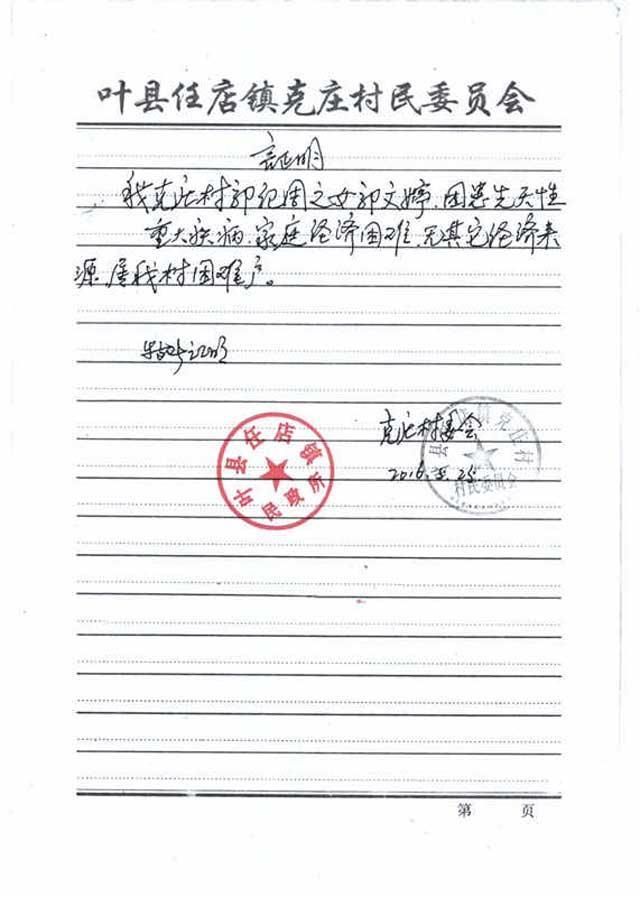 叶县任店镇克庄村民委员会
证明
我克庄村郭纪周之女郭文婷,因患先天性
重大疾病,家庭经济困难,无其它经济来
源,属我村困难户。
特此证明
克庄村委会
2016.5.25
叶县任店镇民政所
县任店镇克庄村
村民委员会
第 页